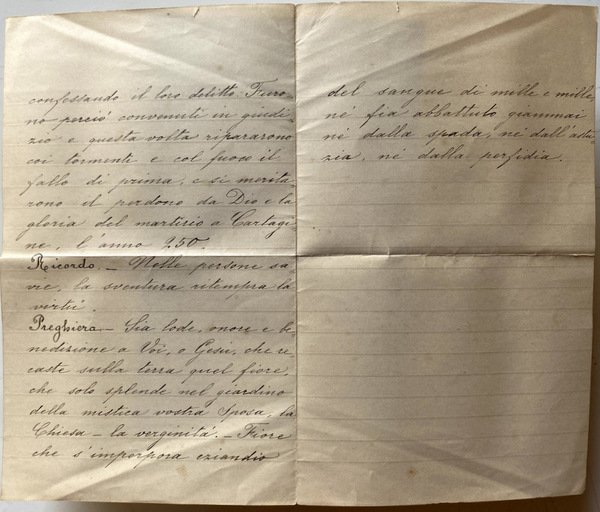 confessando il loro delitto. Furo-
no perciò convenuti in giudi-
zio e questa volta ripararono
coi tormenti e col fuoco il
fallo di prima, e si merita-
rono il perdono da Dio e la
gloria del martirio a Cartagi-
ne, l'anno 250.
Ricordo. - Nelle persone sa-
vie, la sventura ritempra la
virtù.
Preghiera - Sia lode, onore e be-
nedizione a Voi, o Gesù, che re-
caste sulla terra quel fiore,
che solo splende nel giardino
della mistica vostra Sposa, la
Chiesa - la verginità. - Fiore
che s'imporpora eziandio
del sangue di mille e mille,
né fia abbattuto giammai
né dalla spada, né dall'astu-
zia, né dalla perfidia.